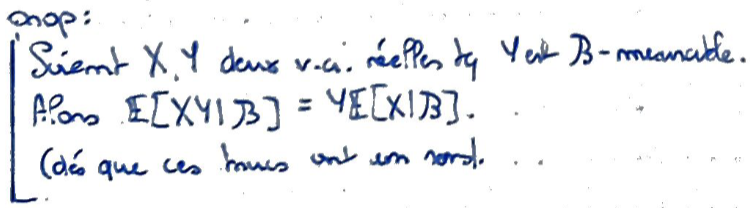 prop:
Soient X, Y deux v.a. réelles tq Y est B-mesurable.
Alors E[XY|B] = YE[X|B].
(dès que ces trucs ont un sens).